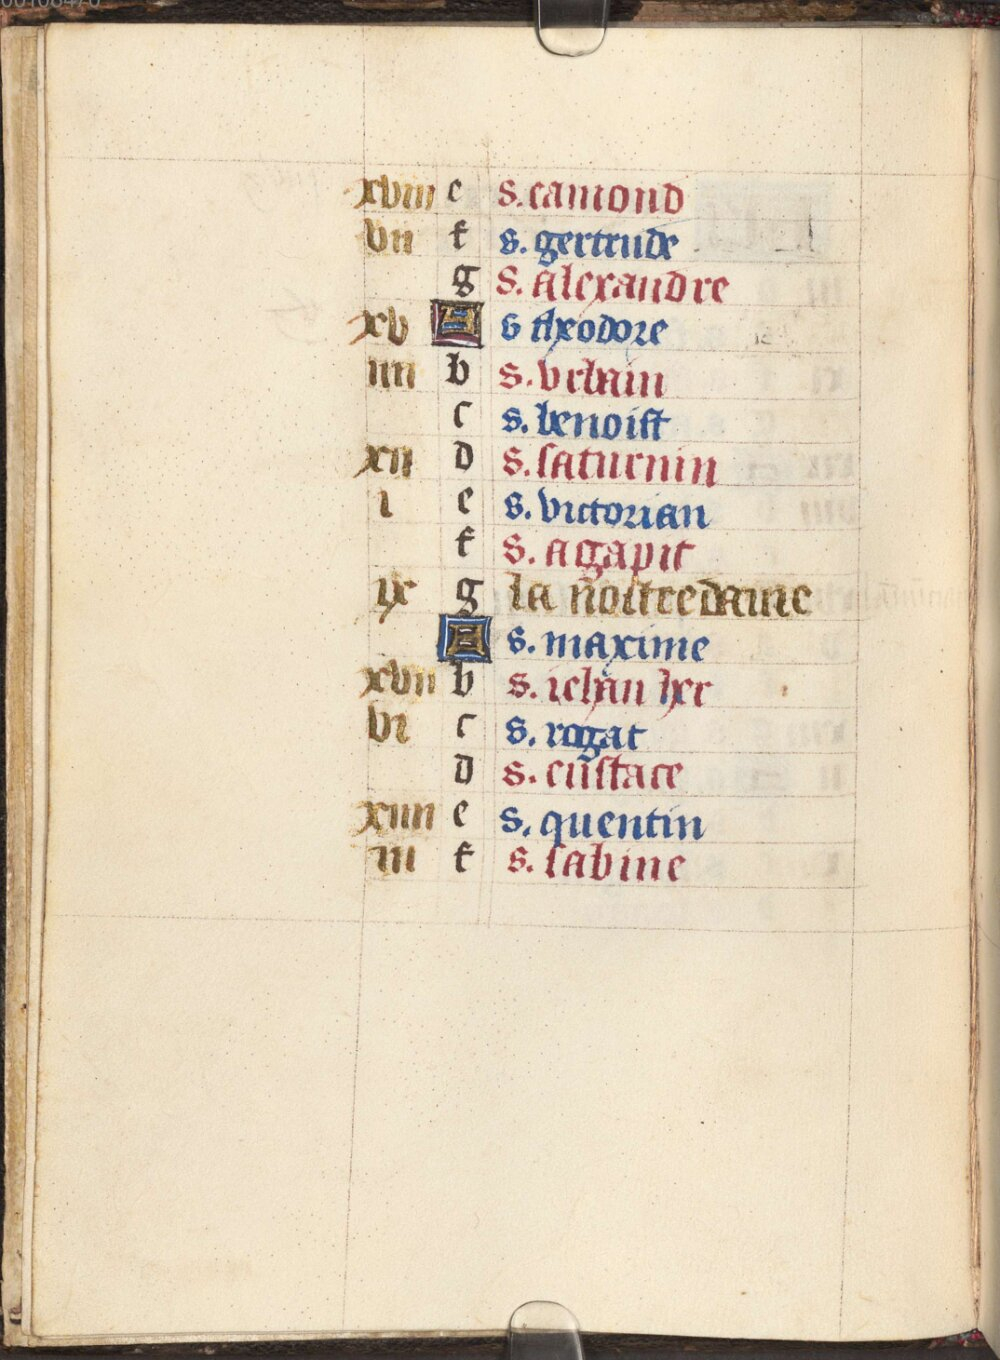 xviii e s. eamond
vii f s. gertrude
g s. alexandre
xv A s theodore
iiii b s. vrbain
c s. benoist
xii d s. saturnin
i e s. victorian
f s. agapit
ix g la nostre dame
A s. maxime
xvii b s. iehan her
vi c s. rogat
d s. eustace
xiiii e s. quentin
iii f s. sabine